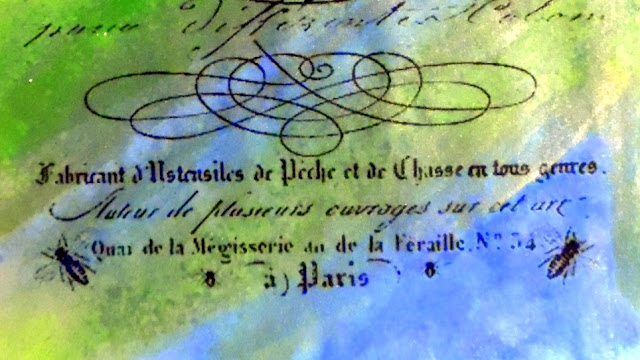 pour différentes Colon
Fabricant d'Ustensiles de Pêche et de Chasse en tous genres.
Auteur de plusieurs ouvrages sur cet art
Quai de la Mégisserie au de la Féraille, N.º 34
à Paris